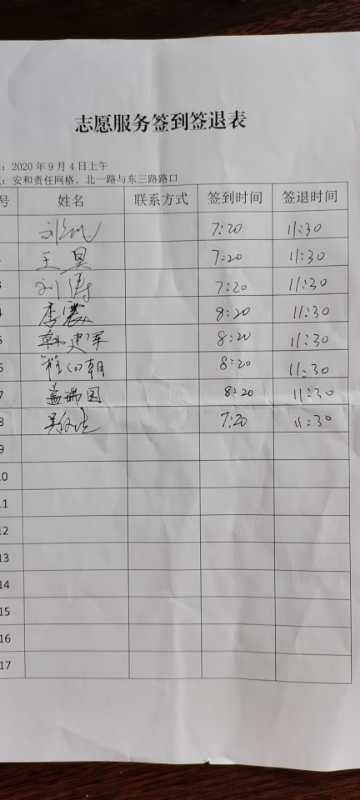 志愿服务签到签退表
：2020年9月4日上午
：安和责任网格、北一路与东三路路口
号 姓名 联系方式 签到时间 签退时间
刘 7:20 11:30
王昊 7:20 11:30
3 刘涛 7:20 11:30
4 李震 8:20 11:30
5 韩建军 8:20 11:30
6 朝 8:20 11:30
7 盖瑞国 8:20 11:30
8 吴 7:20 11:30
9
10
11
12
13
14
15
16
17